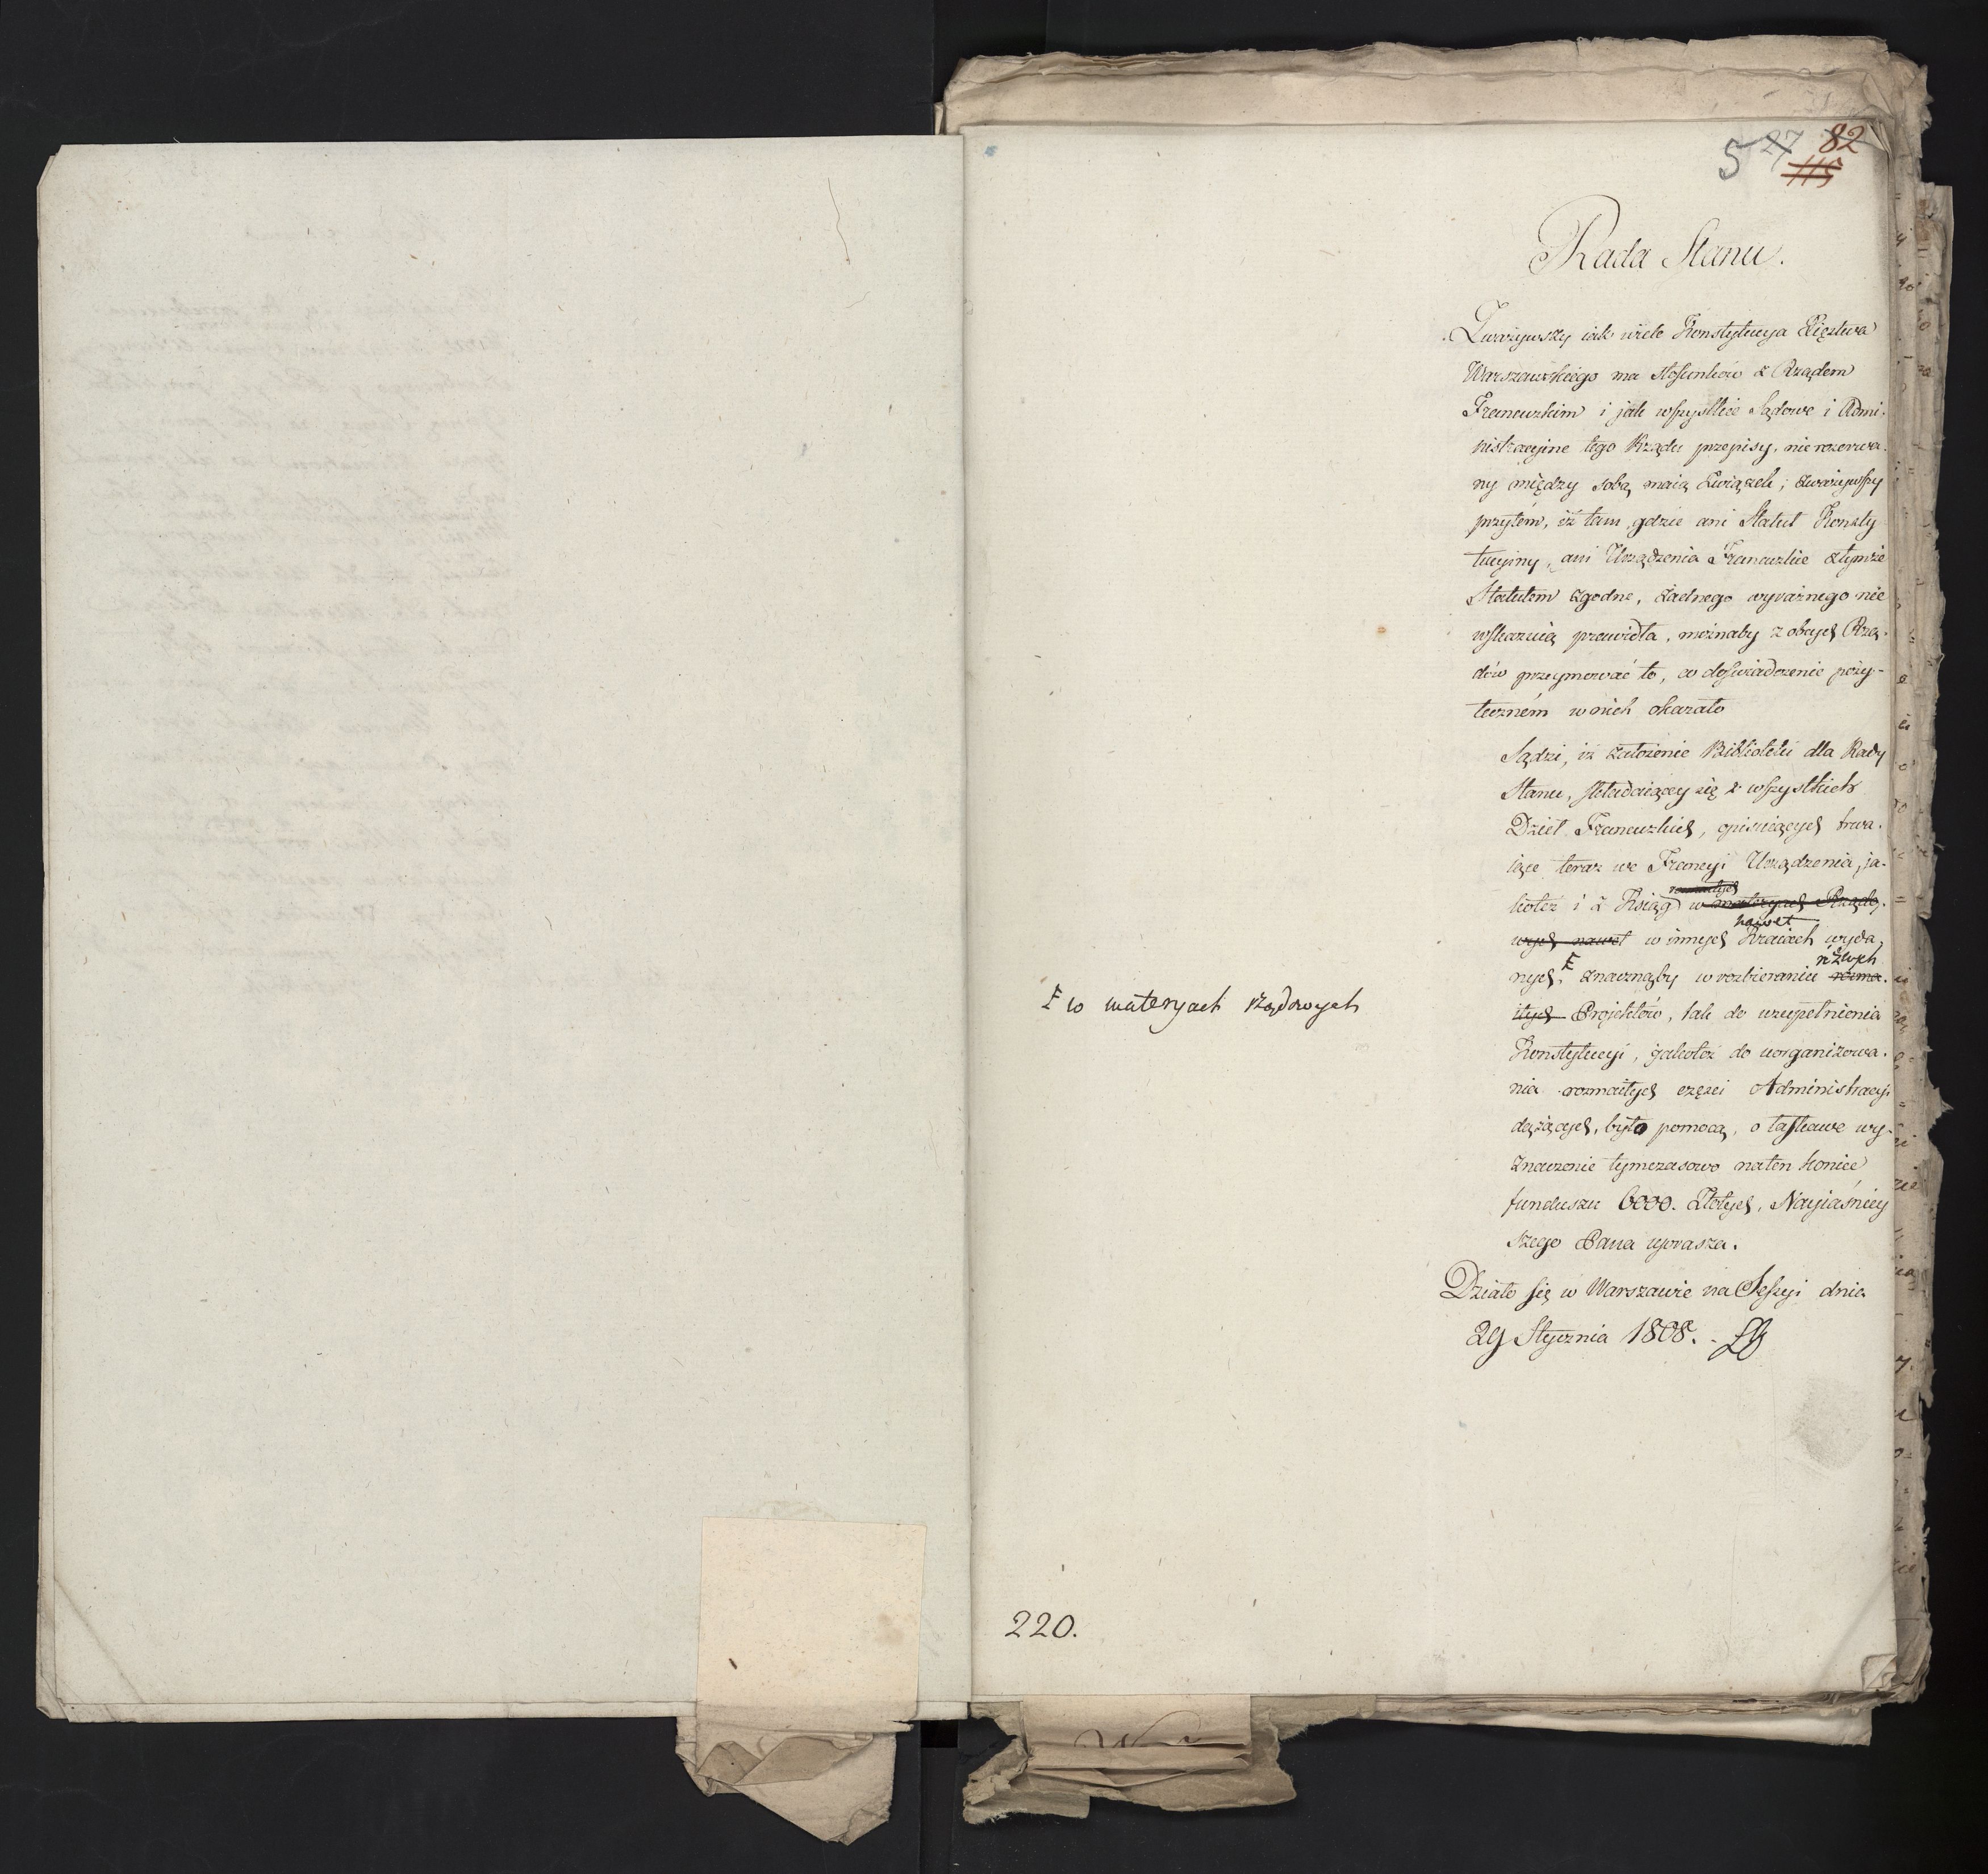 5 27 82
115
Rada Stanu.
Zważywszy iak wiele Konstytucya Xięztwa
Warszawskiego ma stosunków z Rządem
Francuzkim i jak wszystkie Sądowe i Admi-
nistracyine tego Rządu przepisy, nierozerwa-
ny między sobą maią Związek; zważywszy
przytém, iż tam, gdzie ani Statut Konsty-
tucyiny, ani Urządzenia Francuzkie z tymże
Statutem zgodne, żadnego wyraźnego nie
wskazuią prawidła, możnaby z obcych Rzą-
dów przeymować to, co doświadczenie poży-
teczném w nich okazało
Sądzi, iż założenie Biblioteki dla Rady
Stanu, składaiącey się z wszystkich
Dzieł Francuzkich, opisuiących trwa-
iące teraz we Francyi Urządzenia, ja-
rozmaitych
koteż i z Ksiąg w materyach Rządo-
nawet
wych nawet w innych Kraiach wyda-
różnych
nych, F znacznąby w rozbieraniu rozma-
F w materyach rządowych
itych Projektów, tak do uzupełnienia
Konstytucyi, jakoteż do uorganizowa-
nia rozmaitych części Administracyi
dążących, było pomocą, o łaskawe wy-
znaczenie tymczasowo na ten koniec
funduszu 6000. Złotych, Nayiaśniey
szego Pana uprasza.
Działo się w Warszawie na Sessyi dnia
29 Stycznia 1808.
220.